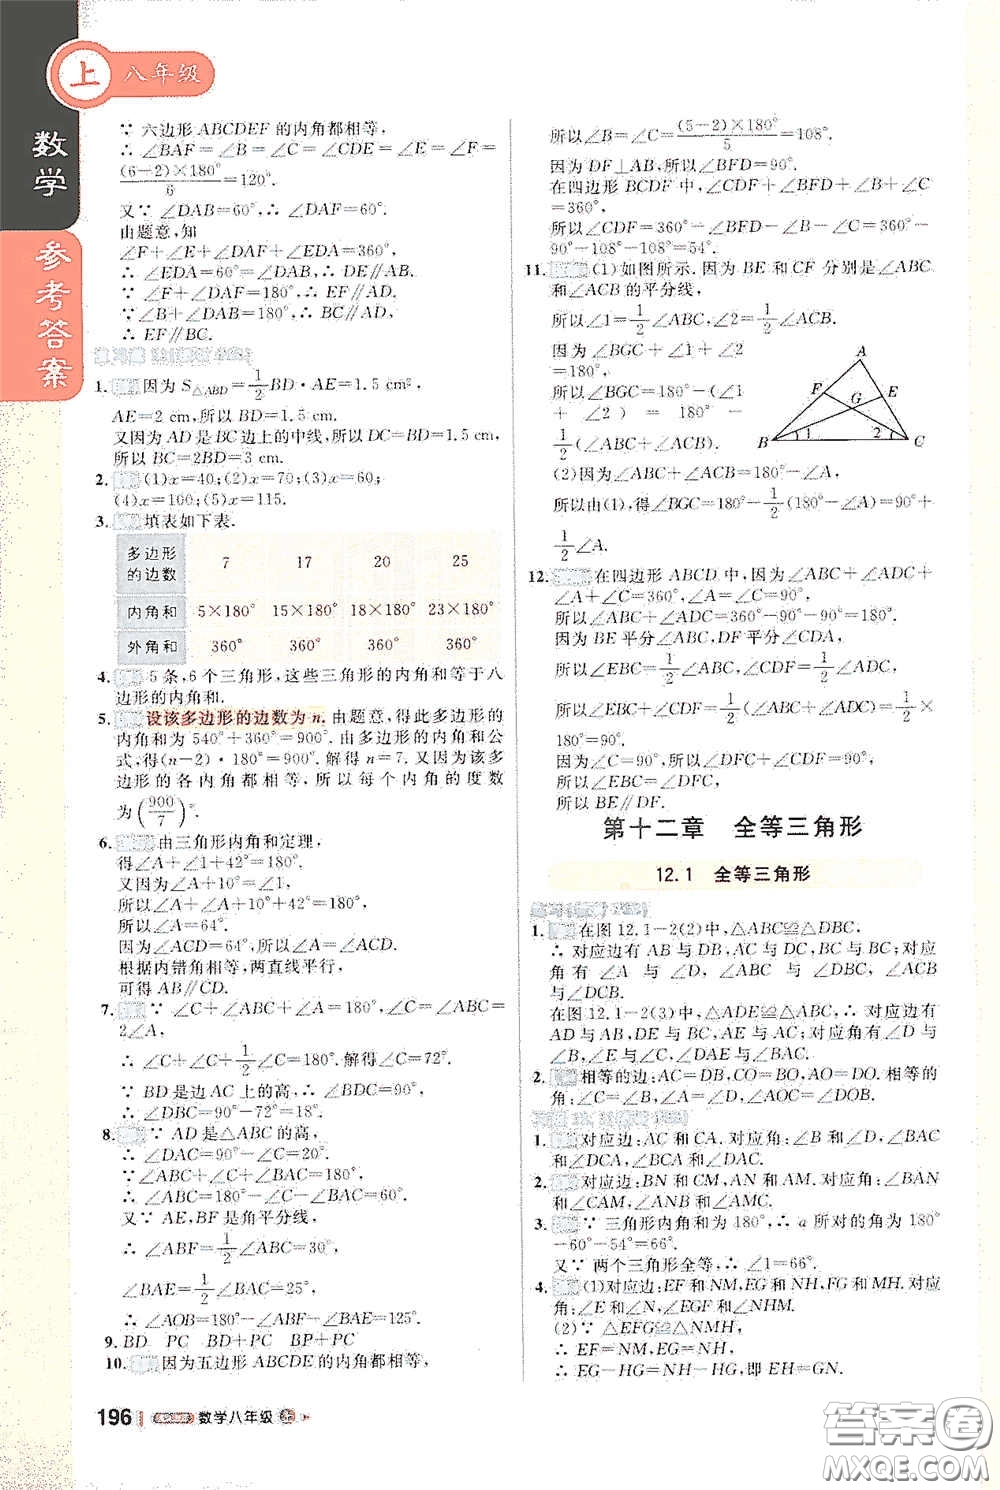 上 八年级
数学
参考答案
∵ 六边形 ABCDEF 的内角都相等,
∴ ∠BAF=∠B=∠C=∠CDE=∠E=∠F=
(6-2)×180°/6=120°.
又∵ ∠DAB=60°,∴ ∠DAF=60°.
由题意,知
∠F+∠E+∠DAF+∠EDA=360°,
∴ ∠EDA=60°=∠DAB,∴ DE∥AB.
∵ ∠F+∠DAF=180°,∴ EF∥AD.
∵∠B+∠DAB=180°,∴ BC∥AD.
∴ EF∥BC.
1. 因为 S△ABD=1/2BD·AE=1.5 cm²,
AE=2 cm,所以 BD=1.5 cm.
又因为 AD 是 BC 边上的中线,所以 DC=BD=1.5 cm,
所以 BC=2BD=3 cm.
2. (1)x=40;(2)x=70;(3)x=60;
(4)x=100;(5)x=115.
3. 填表如下表.
多边形的边数 7 17 20 25
内角和 5×180° 15×180° 18×180° 23×180°
外角和 360° 360° 360° 360°
4. 5 条,6 个三角形,这些三角形的内角和等于八
边形的内角和.
5. 设该多边形的边数为 n.由题意,得此多边形的
内角和为 540°+360°=900°.由多边形的内角和公
式,得(n-2)·180°=900°.解得 n=7.又因为该多
边形的各内角都相等,所以每个内角的度数
为(900/7)°.
6. 由三角形内角和定理,
得∠A+∠1+42°=180°.
又因为∠A+10°=∠1,
所以∠A+∠A+10°+42°=180°.
所以∠A=64°.
因为∠ACD=64°,所以∠A=∠ACD.
根据内错角相等,两直线平行,
可得 AB∥CD.
7. ∵ ∠C+∠ABC+∠A=180°,∠C=∠ABC=
2∠A,
∴ ∠C+∠C+1/2∠C=180°.解得∠C=72°.
∵ BD 是边 AC 上的高,∴ ∠BDC=90°,
∴ ∠DBC=90°-72°=18°.
8. ∵ AD 是△ABC 的高,
∴ ∠DAC=90°-∠C=20°.
∵∠ABC+∠C+∠BAC=180°,
∴ ∠ABC=180°-∠C-∠BAC=60°.
又∵ AE,BF 是角平分线,
∴ ∠ABF=1/2∠ABC=30°,
∠BAE=1/2∠BAC=25°,
∴ ∠AOB=180°-∠ABF-∠BAE=125°.
9. BD PC BD+PC BP+PC
10. 因为五边形 ABCDE 的内角都相等,
196 数学八年级 上
所以∠B=∠C=(5-2)×180°/5=108°.
因为 DF⊥AB,所以∠BFD=90°.
在四边形 BCDF 中,∠CDF+∠BFD+∠B+∠C
=360°,
所以∠CDF=360°-∠BFD-∠B-∠C=360°-
90°-108°-108°=54°.
11. (1)如图所示.因为 BE 和 CF 分别是∠ABC
和∠ACB 的平分线,
所以∠1=1/2∠ABC,∠2=1/2∠ACB.
因为∠BGC+∠1+∠2=180°,
所以∠BGC=180°-(∠1
+∠2)=180°-
1/2(∠ABC+∠ACB).
A F G E B 1 2 C
(2)因为∠ABC+∠ACB=180°-∠A,
所以由(1),得∠BGC=180°-1/2(180°-∠A)=90°+
1/2∠A.
12. 在四边形 ABCD 中,因为∠ABC+∠ADC+
∠A+∠C=360°,∠A=∠C=90°,
所以∠ABC+∠ADC=360°-90°-90°=180°.
因为 BE 平分∠ABC,DF 平分∠CDA,
所以∠EBC=1/2∠ABC,∠CDF=1/2∠ADC,
所以∠EBC+∠CDF=1/2(∠ABC+∠ADC)=1/2×
180°=90°.
因为∠C=90°,所以∠DFC+∠CDF=90°,
所以∠EBC=∠DFC,
所以 BE∥DF.
第十二章 全等三角形
12.1 全等三角形
1. 在图 12.1-2(2)中,△ABC≌△DBC.
∴ 对应边有 AB 与 DB,AC 与 DC,BC 与 BC;对应
角有∠A 与∠D,∠ABC 与∠DBC,∠ACB
与∠DCB.
在图 12.1-2(3)中,△ADE≌△ABC,∴ 对应边有
AD 与 AB,DE 与 BC,AE 与 AC;对应角有∠D 与
∠B,∠E 与∠C,∠DAE 与∠BAC.
2. 相等的边:AC=DB,CO=BO,AO=DO.相等的
角:∠C=∠B,∠A=∠D,∠AOC=∠DOB.
1. 对应边:AC 和 CA.对应角:∠B 和∠D,∠BAC
和∠DCA,∠BCA 和∠DAC.
2. 对应边:BN 和 CM,AN 和 AM.对应角:∠BAN
和∠CAM,∠ANB 和∠AMC.
3. ∵ 三角形内角和为 180°,∴ a 所对的角为 180°
-60°-54°=66°.
又∵ 两个三角形全等,∴ ∠1=66°.
4. (1)对应边:EF 和 NM,EG 和 NH,FG 和 MH.对应
角:∠E 和∠N,∠EGF 和∠NHM.
(2)∵ △EFG≌△NMH,
∴ EF=NM,EG=NH,
∴ EG-HG=NH-HG,即 EH=GN.
答案圈
MXQE.COM